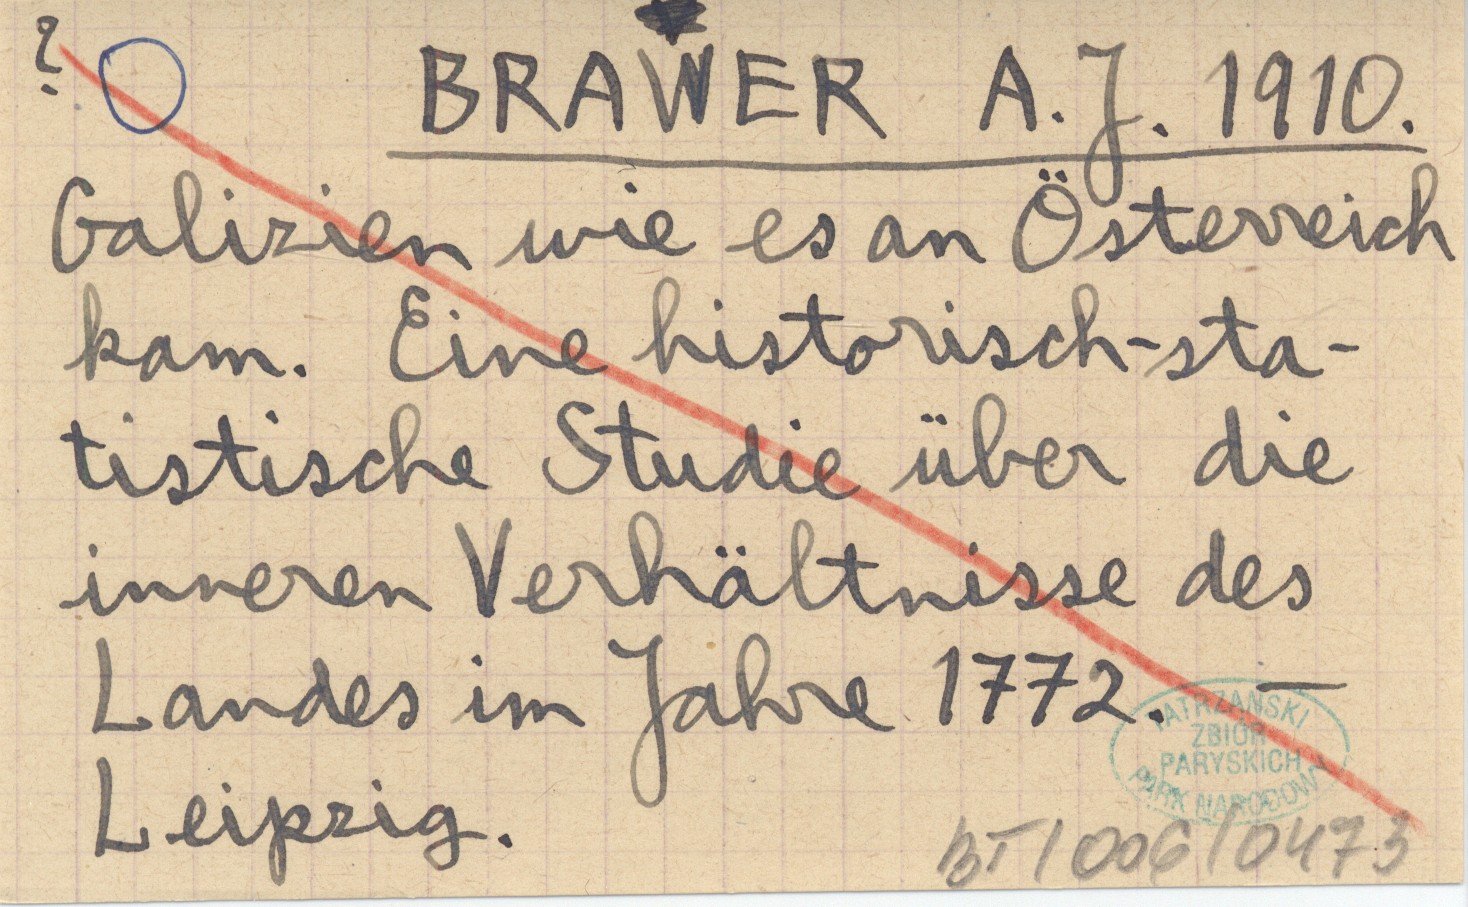 ?
BRAWER A.J. 1910.
Galizien wie es an Österreich
kam. Eine historisch-sta-
tistische Studie über die
inneren Verhältnisse des
Landes im Jahre 1772. —
Leipzig.
TATRZAŃSKI
ZBIÓR
PARYSKICH
PARK NARODOWY
BT/006/0473